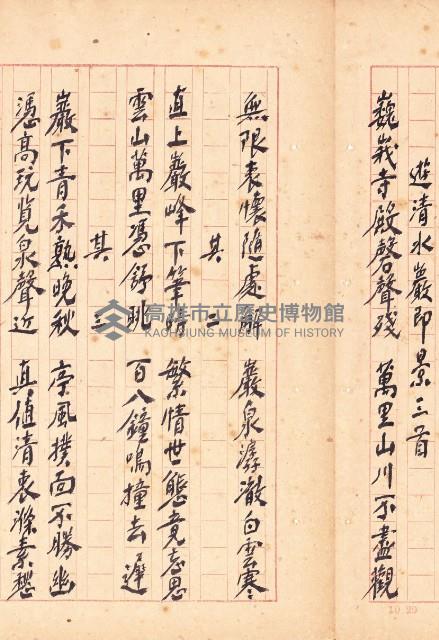 遊清水巖即景三首
巍峩寺殿磬聲殘 萬里山川不盡觀
無限衷懷隨處解 巖泉潺澈白雲寒
其二
直上巖峰下筆 繁情世態竟忘思
雲山萬里憑舒眺 百八鐘鳴撞去遲
其三
巖下青禾熟晚秋 風撲面不勝幽
憑高玩覧泉聲近 真值清衷滌素愁
高雄市立歷史博物館
KAOHSIUNG MUSEUM OF HISTORY
10.20